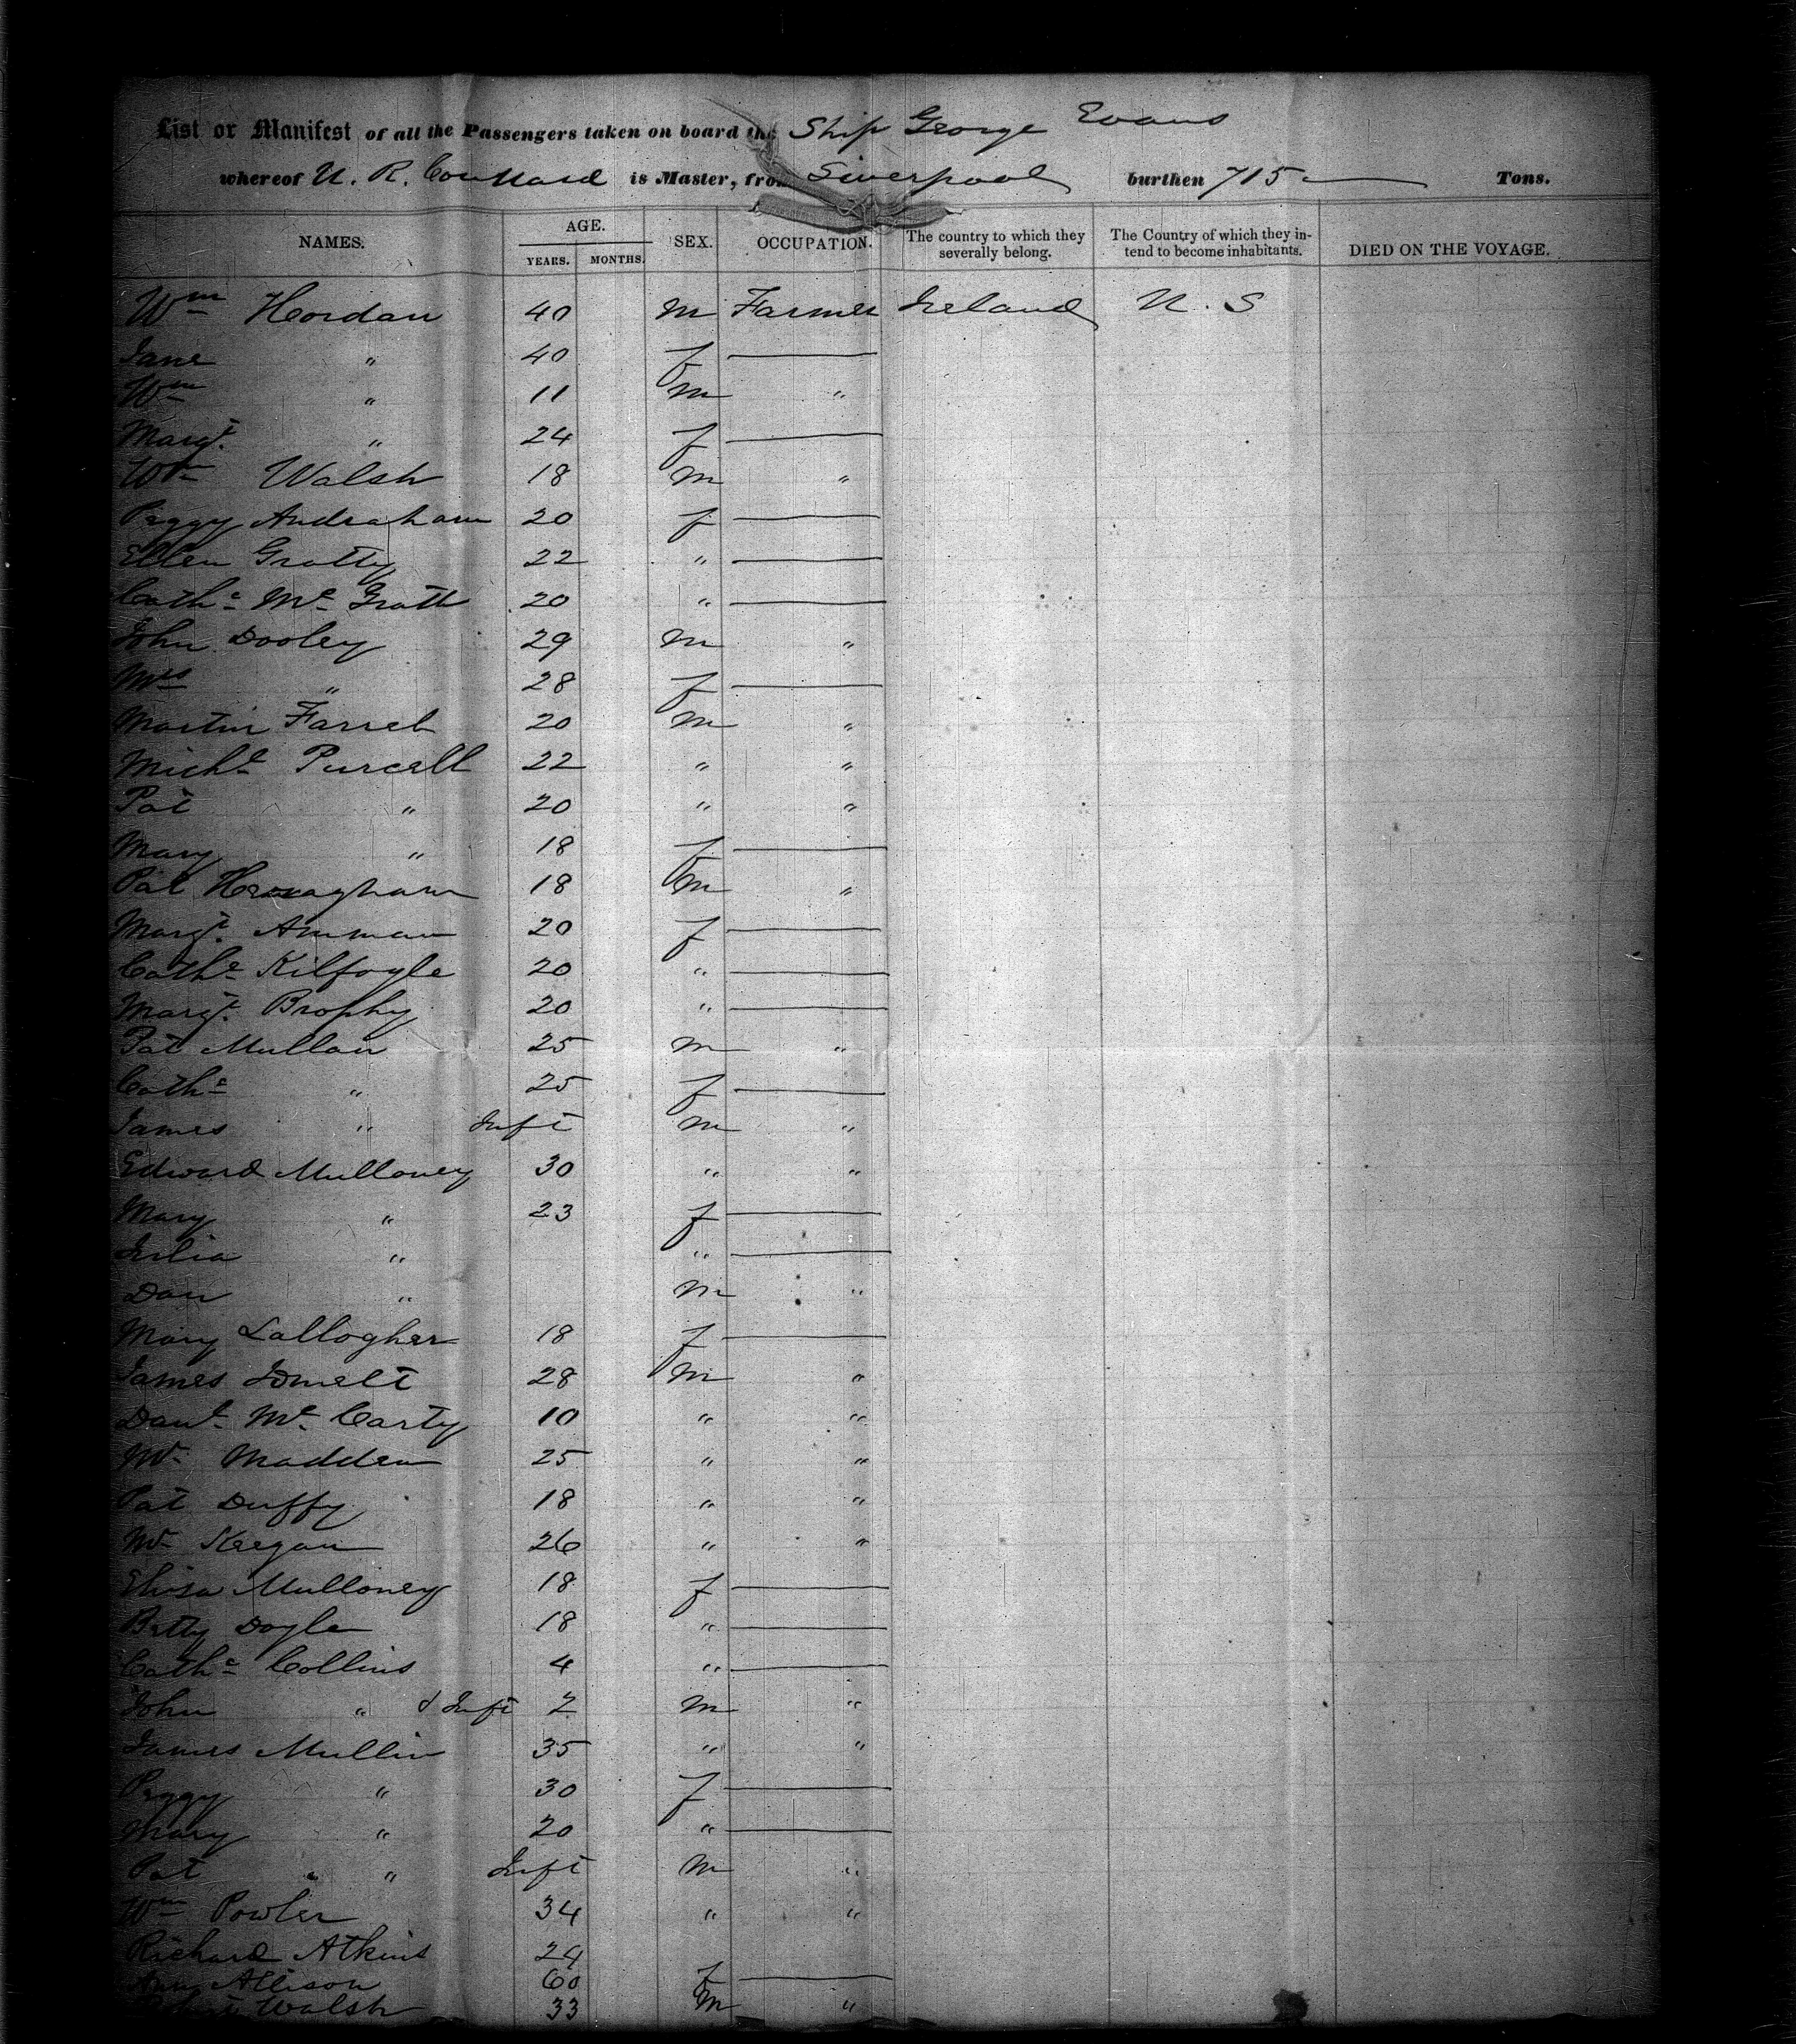 List or Manifest of all the Passengers taken on board the Ship George Evans
whereof is Master, from Liverpool burthen 715 Tons.
NAMES. AGE. YEARS. MONTHS. SEX. OCCUPATION. The country to which they severally belong. The Country of which they intend to become inhabitants. DIED ON THE VOYAGE.
Wm 40 m Farmer Ireland U. S
Jane " 40 f
Wm " 11 m "
Margt. " 24 f
Wm Walsh 18 m "
Peggy 20 f
Ellen Gratty 22 "
Cathe McGrath 20 "
John Dooley 29 m "
Mrs " 28 f
Martin Farrel 20 m "
Michl Purcell 22 " "
Pat " 20 " "
Mary " 18 f
Pat 18 m "
Margt. 20 f
Cathe Kilfoyle 20 "
Margt. Brophy 20 "
Pat Mullan 25 m "
Cathe " 25 f
James " Inft m "
Edward Mulloney 30 " "
Mary " 23 f
Julia " "
Dan " m "
Mary 18 f
James 28 m "
Danl McCarty 10 " "
Madden 25 " "
Pat Duffy 18 " "
Keegan 26 " "
Eliza Mulloney 18 f
Betty Doyle 18 "
Cathe Collins 4 "
John " & Inft 2 m "
James Mullin 35 " "
Peggy " 30 f
Mary " 20 "
Pat " Inft m "
Wm Powler 34 " "
Richard Atkins 24
Allison 60 f
Walsh 33 m "